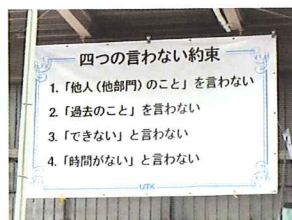 四つの言わない約束
1.「他人(他部門)のこと」を言わない
2.「過去のこと」を言わない
3.「できない」と言わない
4.「時間がない」と言わない
UTK